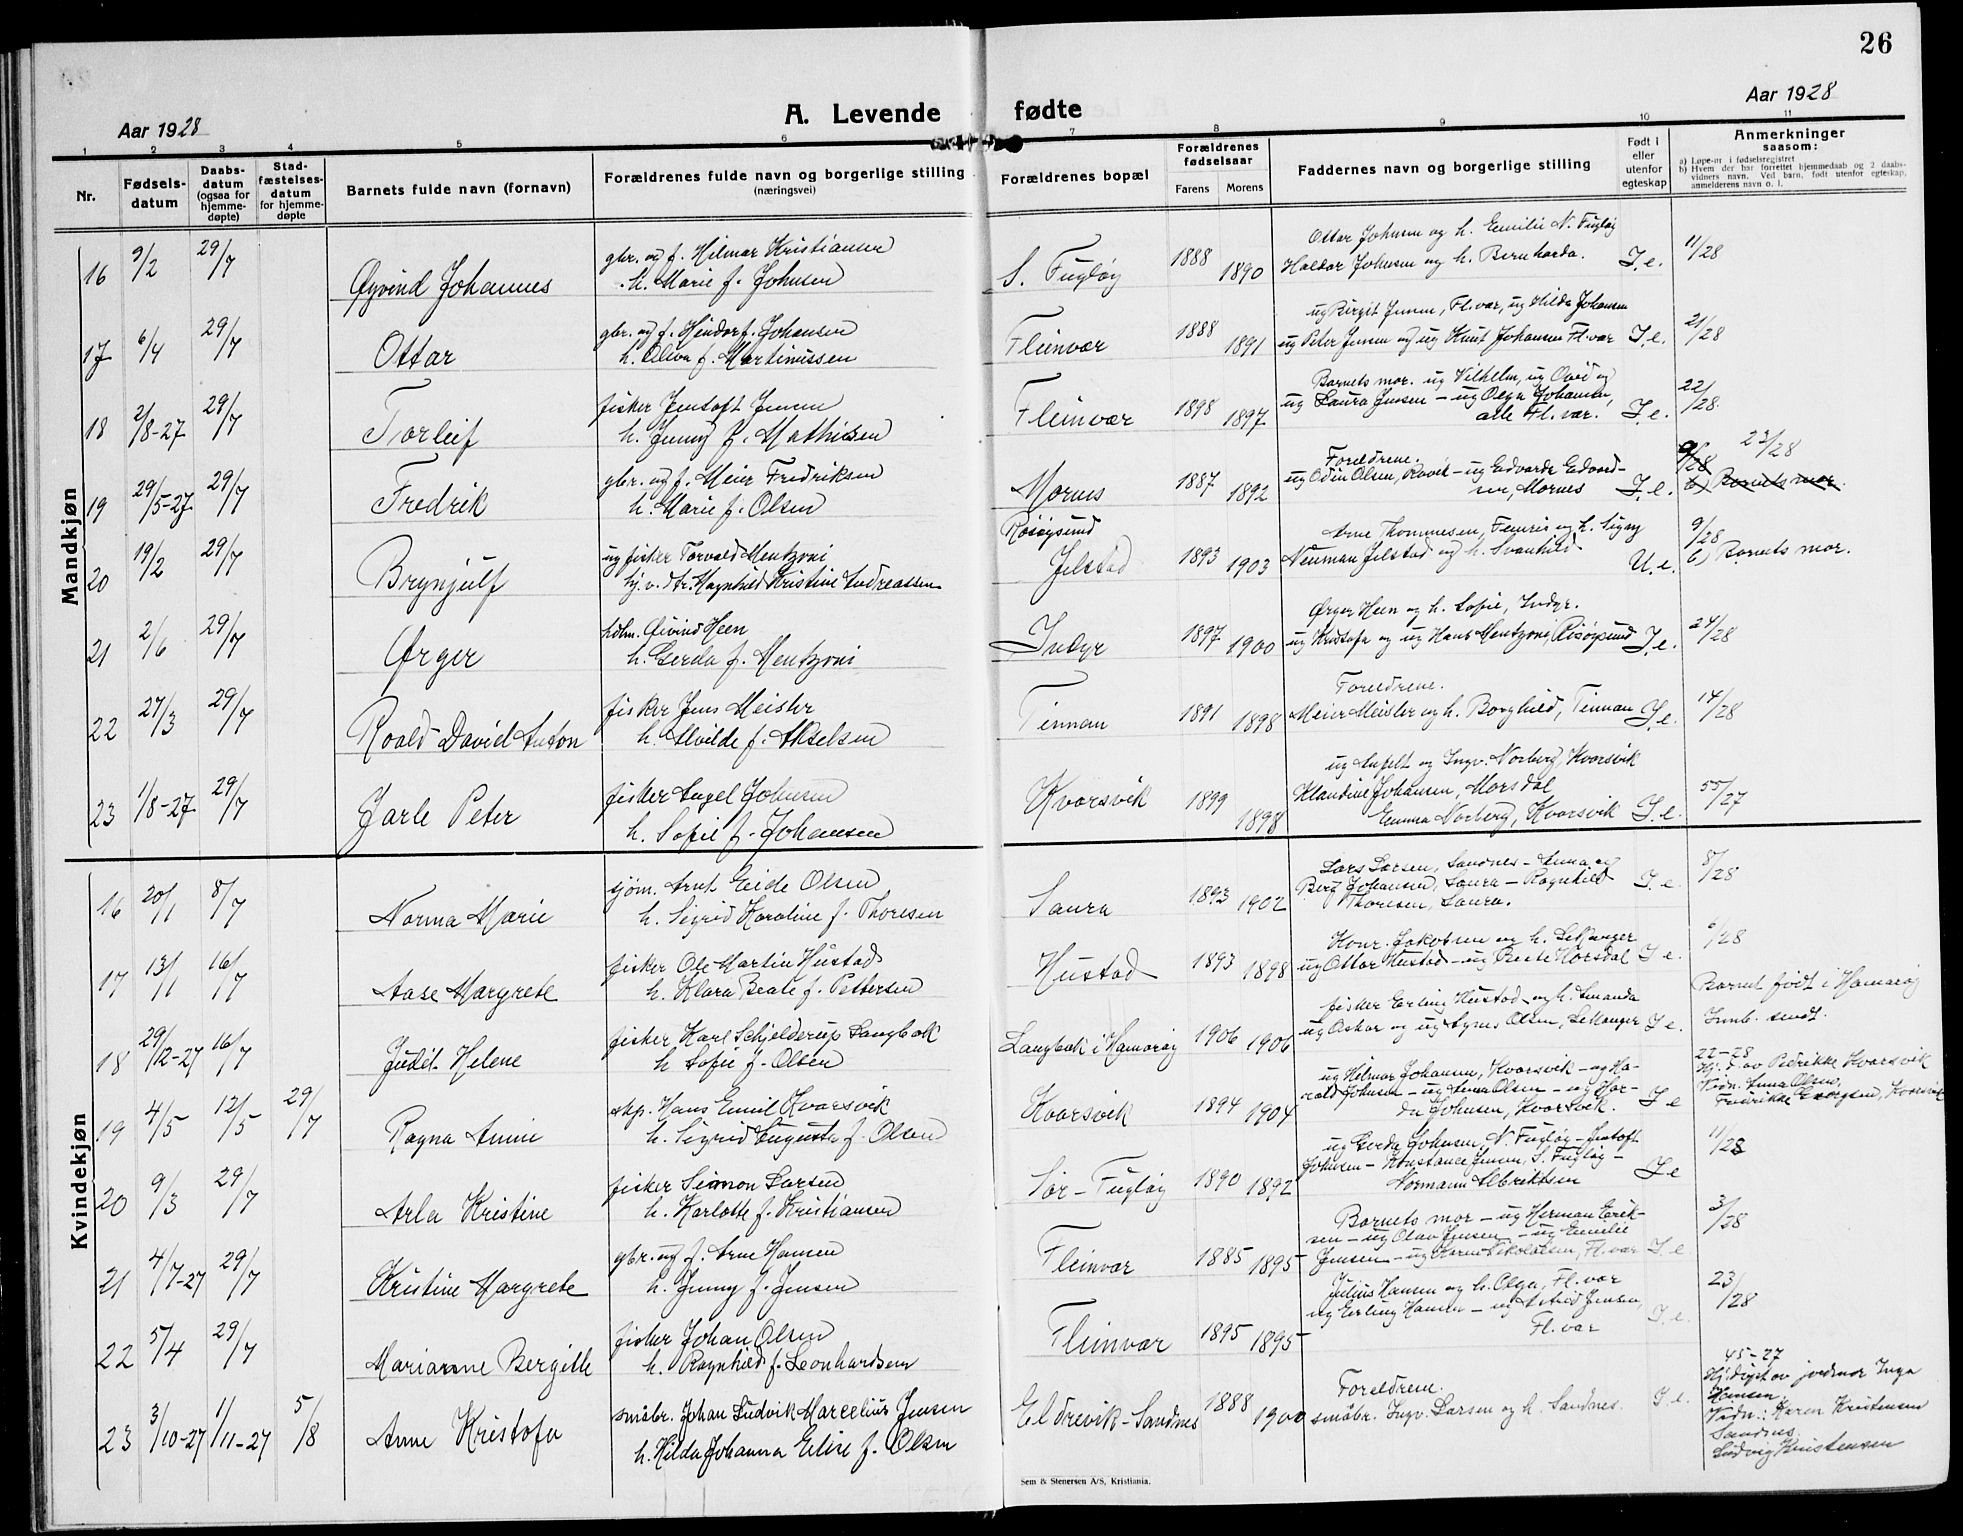 26
Aar 1928
A. Levende fødte
Aar 1928
1 2 3 4 5 6 7 8 9 10 11
Nr.
Fødselsdatum
Daabsdatum (ogsaa for hjemmedøpte)
Stadfæstelsesdatum for hjemmedøpte
Barnets fulde navn (fornavn)
Forældrenes fulde navn og borgerlige stilling (næringsvei)
Forældrenes bopæl
Forældrenes fødselsaar
Farens Morens
Faddernes navn og borgerlige stilling
Født i eller utenfor egteskap
Anmerkninger saasom:
a) Løpe-nr i fødselsregistret
b) Hvem der har forrettet hjemmedaab og 2 daabsvidners navn. Ved barn, født utenfor egteskap, anmelderens navn o. l.
Mandkjøn
16 9/2 29/7 Øyvind Johannes
gbr. og f. Hilmar Kristiansen
h. Marie f. Johnsen
S. Fugløy 1888 1890
Ottar Johnsen og h. Emilie N. Fugløy
Haldor Johnsen og h. Bernharda.
I. e. 11/28
17 6/4 29/7 Ottar
gbr. og f. Hindorf Johansen
h. Oliva f. Martinussen
Fleinvær 1888 1891
ug Birgit Jensen, Fl.vær, ug Hilda Johansen
ug Peter Jensen og ug Knut Johansen Fl.vær
I. e. 21/28
18 2/8-27 29/7 Torleif
fisker Jentoft Jensen
h. Jenny f. Mathisen
Fleinvær 1898 1897
Barnets mor. ug Vilhelm, ug Ovid og
ug Laura Jensen - ug Olga Johansen,
alle Fl.vær.
I. e. 22/28
19 29/5-27 29/7 Fredrik
gbr. og f. Meier Fredriksen
h. Marie f. Olsen
Mornes 1887 1892
Foreldrene.
ug Odin Olsen, Røvik - ug Edvarda Edvardsen, Mornes
I. e. 9/28 23/28
b) Barnets mor.
20 19/2 29/7 Brynjulf
ug fisker Torvald Mentzoni
hj. v. dtr. Magnhild Kristine Andreassen
Røsøysund
Jelstad 1893 1903
Arne Thommesen, Femris og h. Signy
Neuman Jelstad og h. Svanhild
U. e. 9/28
b) Barnets mor.
21 2/6 29/7 Ørger
hdlm. Øivind Heen
h. Gerda f. Mentzoni
Indyr 1897 1900
Ørger Heen og h. Sofie, Indyr.
ug Kristofa og ug Hans Mentzoni, Risøysund
I. e. 24/28
22 27/3 29/7 Roald David Anton
fisker Jens Meisler
h. Alvilde f. Akselsen
Tinnan 1891 1898
Foreldrene.
Meier Meisler og h. Borghild, Tinnan
I. e. 14/28
23 1/8-27 29/7 Jarle Peter
fisker Angel Johnsen
h. Sofie f. Johansen
Kvarsvik 1899 1898
ug Anfelt og Ingv. Norberg, Kvarsvik
Klaudine Johansen, Morsdal
Emma Norberg, Kvarsvik
I. e. 55/27
Kvindekjøn
16 20/1 8/7 Norma Marie
sjøm. Arnt Eide Olsen
h. Sigrid Karoline f. Thoresen
Saura 1893 1902
Lars Larsen, Sandnes - Anna og
Berg Johansen, Saura - Ragnhild
Thoresen, Saura.
I. e. 8/28
17 13/1 16/7 Aase Margrete
fisker Ole Martin Hustad
h. Klara Beate f. Pettersen
Hustad 1893 1898
Konr. Jakobsen og h. Lekanger
ug Ottar Hustad - ug Beate Horsdal
I. e. 6/28
18 29/12-27 16/7 Judit Helene
fisker Karl Schjelderup Langbak
h. Sofie f. Olsen
Langbak i Hamarøy 1906 1906
fisker Erling Hustad og h. Amanda
ug Oskar og ug Agnes Olsen, Lekanger
I. e.
Barnet født i Hamarøy
Innb. sendt.
19 4/5 12/5 29/7 Ragna Annie
skp. Hans Emil Kvarsvik
h. Sigrid Augusta f. Olsen
Kvarsvik 1894 1904
ug Hilmar Johansen, Kvarsvik - ug Harald Johnsen - ug Anna Olsen - ug Harda Johnsen, Kvarsvik.
I. e
22-28
Hj. d. av Pedrikke Kvarsvik
Vidn. Anna Olsen,
20 9/3 29/7 Arla Kristine
fisker Simon Larsen
h. Karlotte f. Kristiansen
Sør-Fugløy 1890 1892
ug Gerda Johnsen, N. Fugløy - Jentoft
Johnsen - Konstance Jensen, S. Fugløy -
Normann Albriktsen
I. e 11/28
21 4/7-27 29/7 Kristine Margrete
gbr. og f. Arne Hansen
h. Jenny f. Jensen
Fleinvær 1885 1895
Barnets mor - ug Herman Eriksen - ug Olav Jensen - ug Emilie
Jensen - ug Karen Nikolaisen, Fl.vær
I. e. 3/28
22 5/4 29/7 Marianne Bergitte
fisker Johan Olsen
h. Ragnhild f. Leonhardsen
Fleinvær 1895 1895
Julius Hansen og h. Olga, Fl.vær
ug Erling Hansen - ug Astrid Jensen,
Fl.vær
I. e. 23/28
23 3/10-27 1/11-27 5/8 Anne Kristofa
småbr. Johan Ludvik Marcelius Jensen
h. Hilda Johanna Elise f. Olsen
Eldrevik-Sandnes 1888 1900
Foreldrene.
småbr. Ingv. Larsen og h. Sandnes.
I. e.
45-27
Hj. døpt av jordmor Inga
Hansen.
Vidn: Karen Kristensen
Sandnes.
Ludvig Kristensen
Sem & Stenersen A/S, Kristiania.